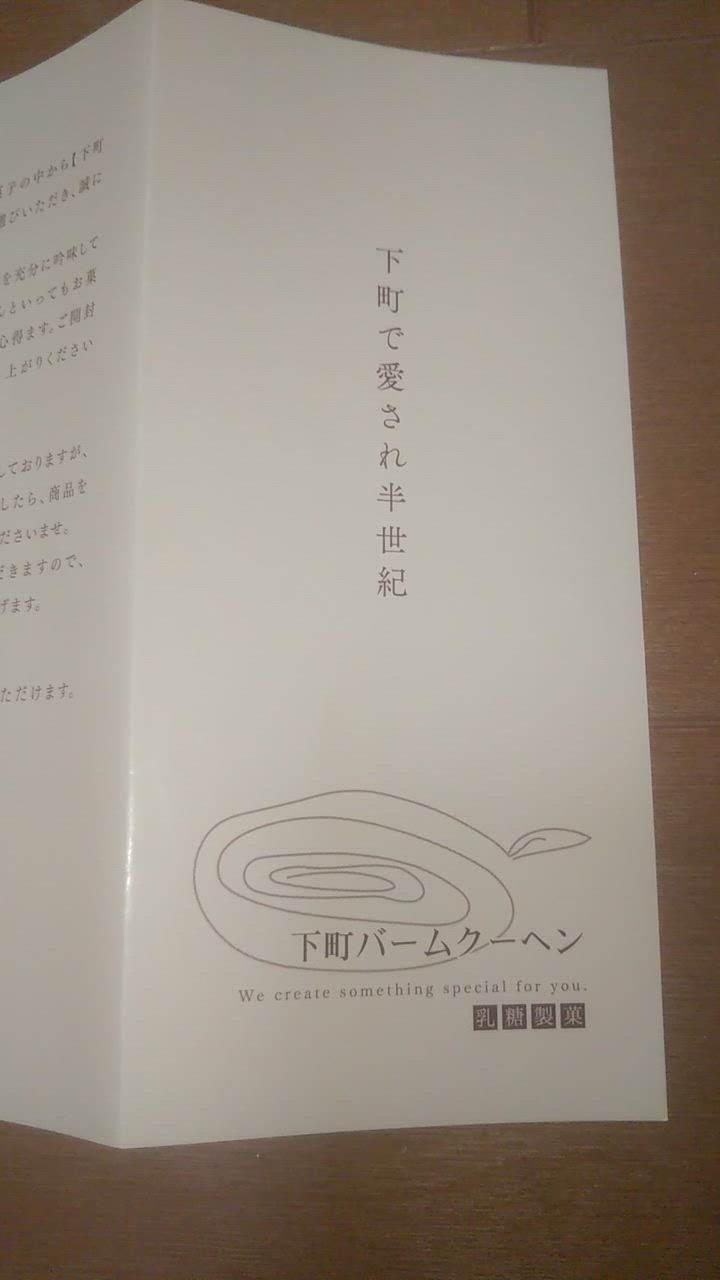 菓子の中から【下町
選びいただき、誠に
を充分に吟味して
んといってもお菓
心得ます。ご開封
上がりください
しておりますが、
したら、商品を
ださいませ。
だきますので、
げます。
ただけます。
下町で愛され半世紀
下町バームクーヘン
We create something special for you.
乳糖製菓